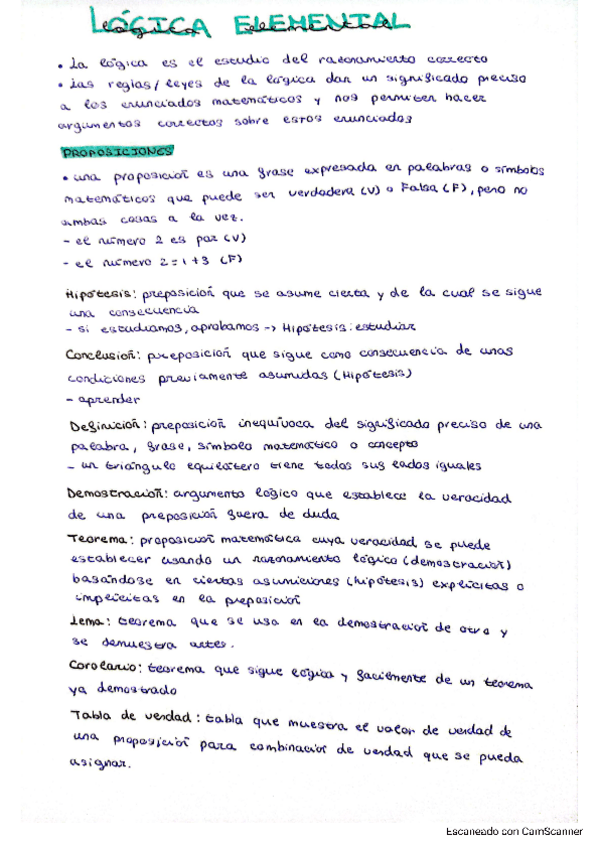 LÓGICA ELEMENTAL
• La lógica es el estudio del razonamiento correcto
• Las reglas/leyes de la lógica dan un significado preciso
a los enunciados matemáticos y nos permiten hacer
argumentos correctos sobre estos enunciados
PROPOSICIONES
• una proposición es una frase expresada en palabras o símbolos
matemáticos que puede ser verdadera (V) o Falsa (F), pero no
ambas cosas a la vez.
- el número 2 es par (V)
- el número 2 = 1 + 3 (F)
Hipótesis: preposición que se asume cierta y de la cual se sigue
una consecuencia
- si estudiamos, aprobamos -> Hipótesis: estudiar
Conclusión: preposición que sigue como consecuencia de unas
condiciones previamente asumidas (Hipótesis)
- aprender
Definición: preposición inequívoca del significado preciso de una
palabra, frase, símbolo matemático o concepto
- un triángulo equilátero tiene todos sus lados iguales
Demostración: argumento lógico que establece la veracidad
de una preposición fuera de duda
Teorema: proposición matemática cuya veracidad se puede
establecer usando un razonamiento lógico (demostración)
basándose en ciertas asunciones (hipótesis) explícitas o
implícitas en la preposición
Lema: teorema que se usa en la demostración de otro y
se demuestra antes.
Corolario: teorema que sigue lógica y facilmente de un teorema
ya demostrado
Tabla de verdad: tabla que muestra el valor de verdad de
una proposición para combinación de verdad que se pueda
asignar.
Escaneado con CamScanner